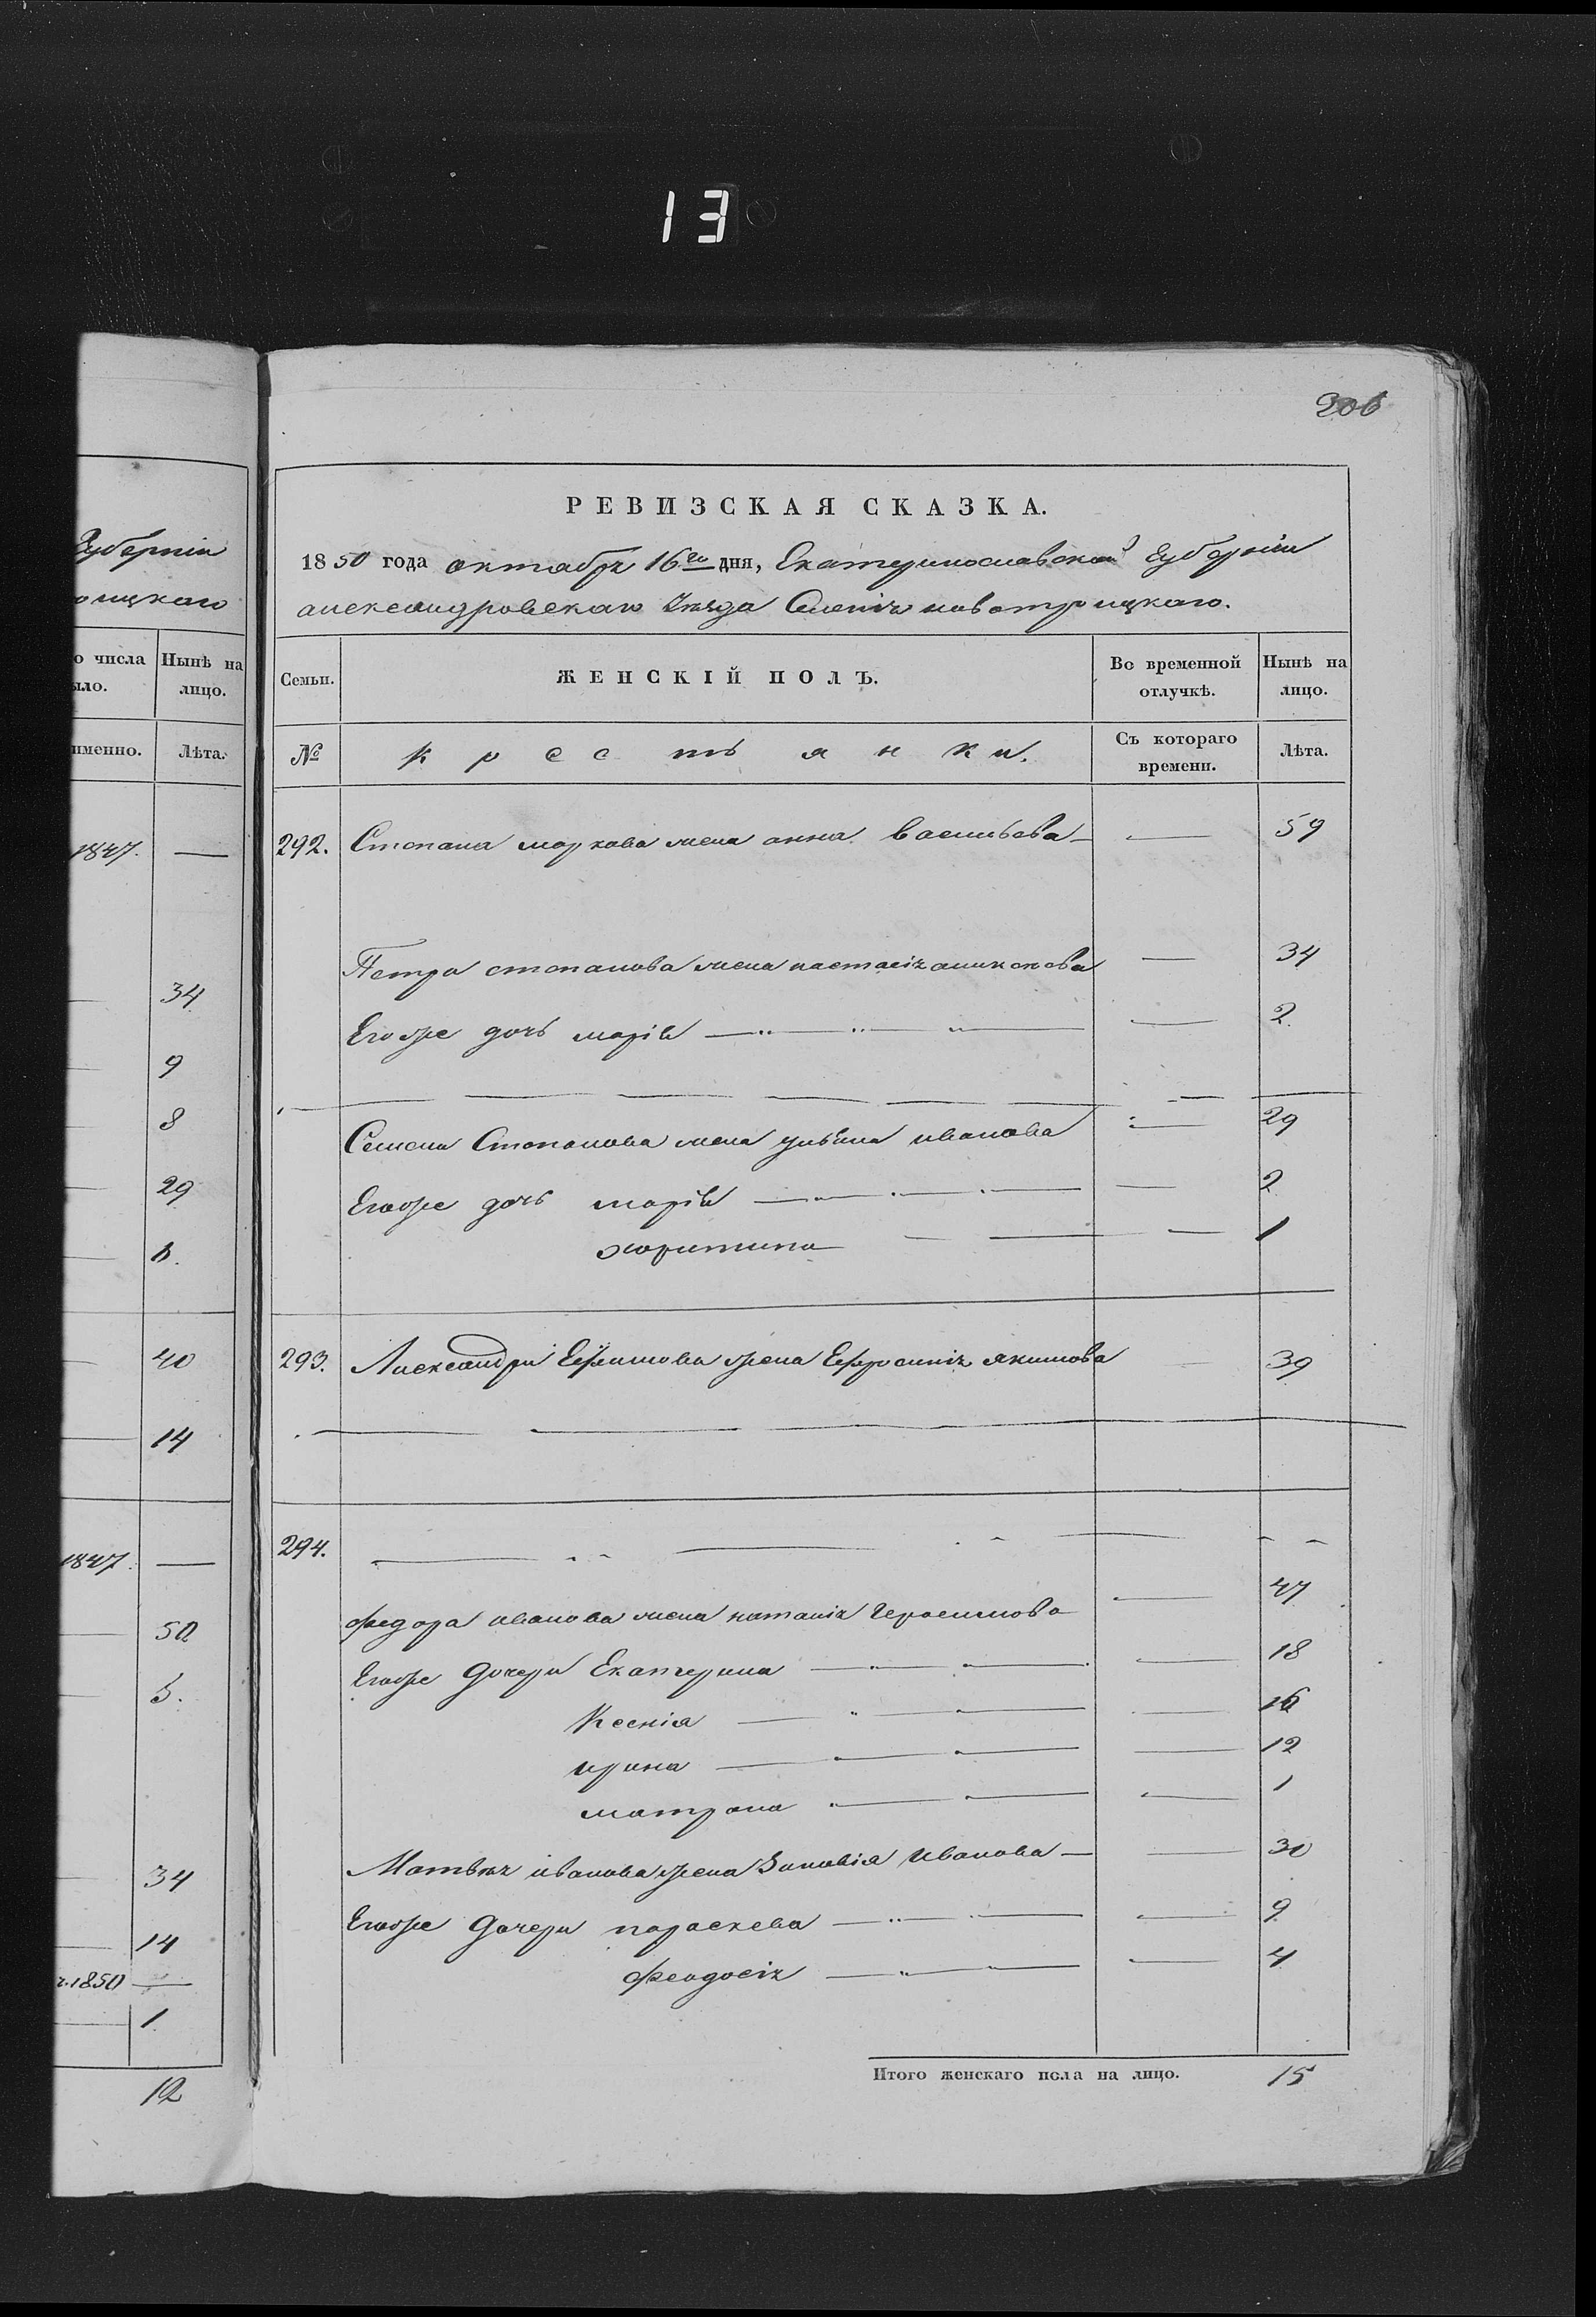 13
206
РЕВИЗСКАЯ СКАЗКА.
1850 года октября 16го дня, Екатеринославской Губерніи
александровскаго уѣзда Селенія новотроицкаго.
Губерніи
оицкаго
о числа
ыло.
Нынѣ на
лицо.
именно.
Лѣта.
1847. —
34
9
8
29
40
14
1847. —
50
5.
34
14
1850 —
1
12
Семьи.
ЖЕНСКІЙ ПОЛЪ.
Во временной
отлучкѣ.
Нынѣ на
лицо.
№
крестьянки.
Съ котораго
времени.
Лѣта.
292. Степана маркова жена анна васильева — — 59
Петра степанова жена настасія — 34
Егоже дочь марія — — 2.
Семена Степанова жена ульяна иванова — 29
Егоже дочь марія — — 2
харитина — — 1
293. Александра Ефимова жена Ефросинія якимова 39
294. —
федора иванова жена наталія Герасимова — 47
Егоже дочери Екатерина — — 18
Ксенія — — 16
ирина — — 12
матрона — — 1
Матвѣя иванова жена Зиновія Иванова — — 30
Егоже дочери параскева — — 9
феодосія — — 4
Итого женскаго пола на лицо. 15